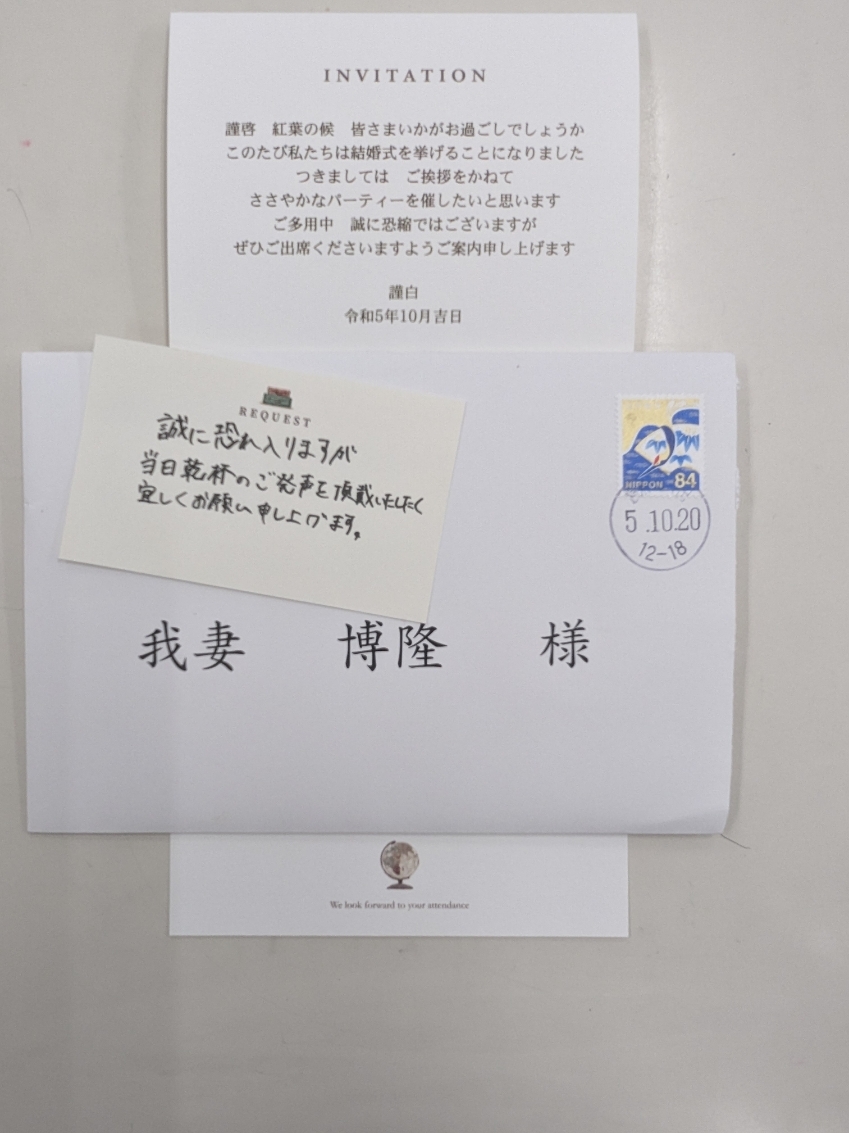 INVITATION
謹啓　紅葉の候　皆さまいかがお過ごしでしょうか
このたび私たちは結婚式を挙げることになりました
つきましては　ご挨拶をかねて
ささやかなパーティーを催したいと思います
ご多用中　誠に恐縮ではございますが
ぜひご出席くださいますようご案内申し上げます
謹白
令和5年10月吉日
REQUEST
誠に恐れ入りますが
当日乾杯のご発声を頂戴いたしたく
宜しくお願い申し上げます。
NIPPON 84
5.10.20
12-18
我妻　博隆　様
We look forward to your attendance